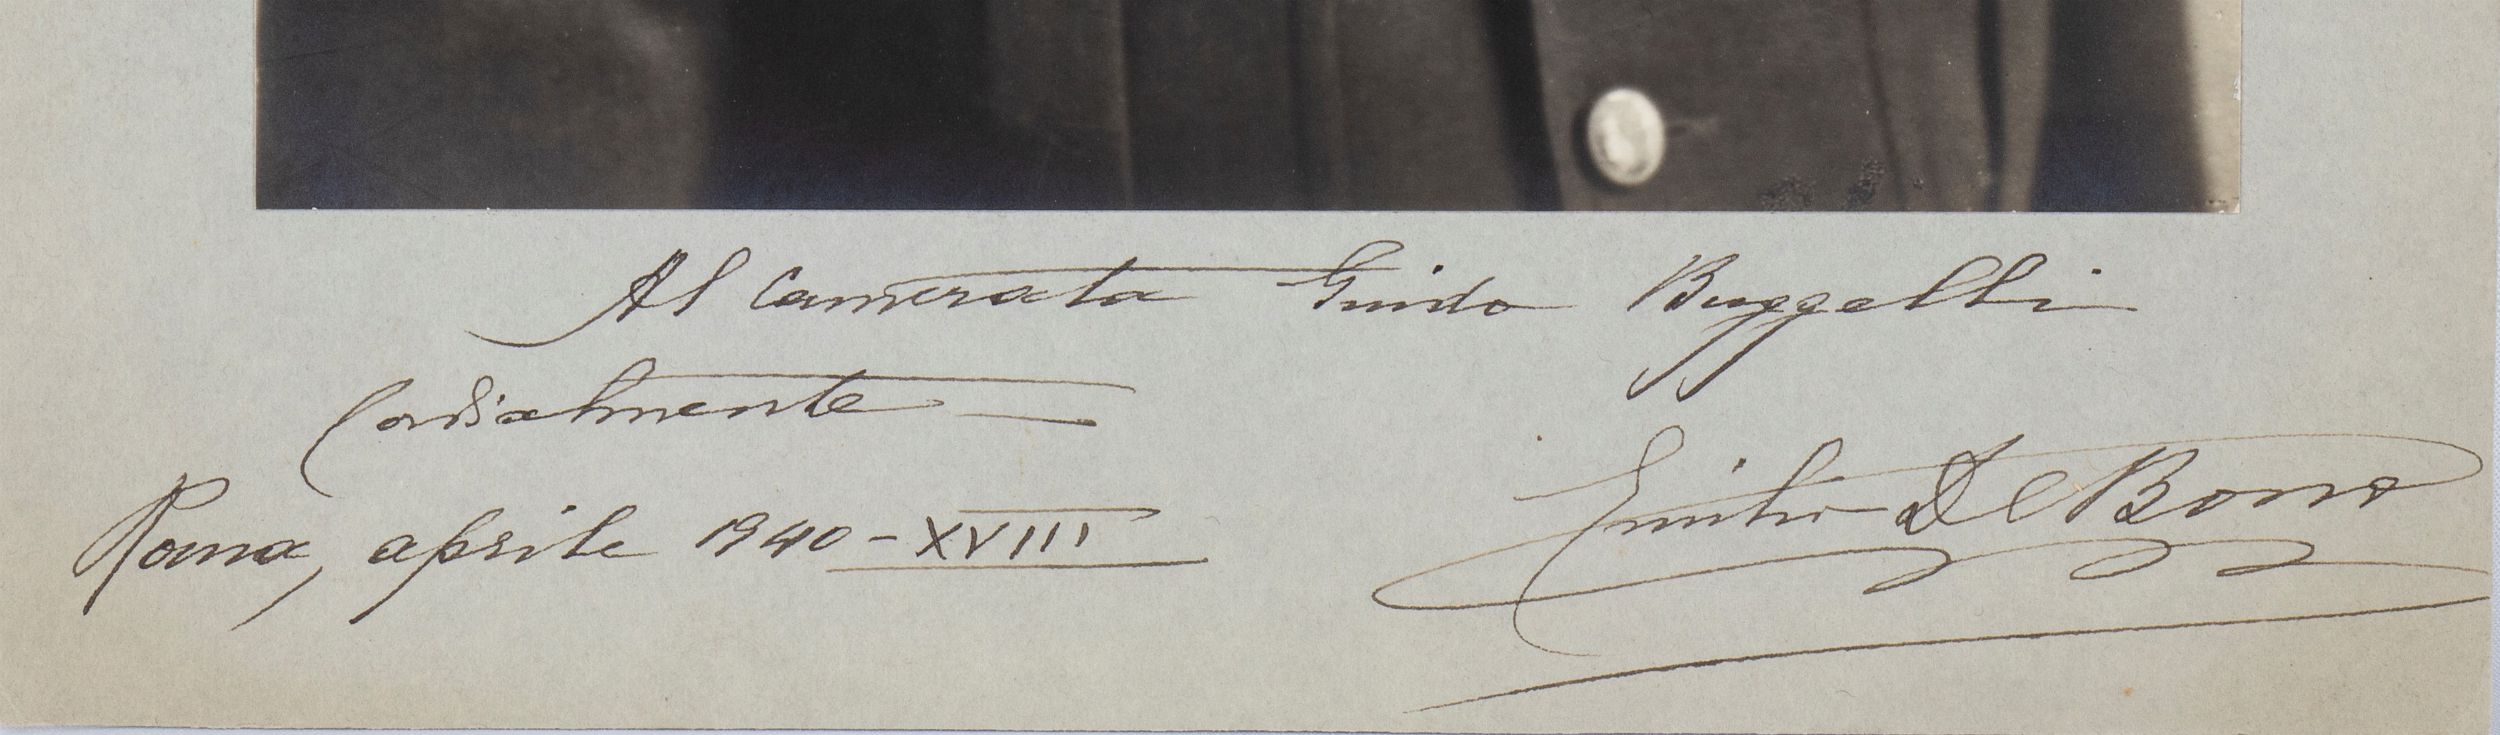 Al Camerata Guido Buggelli
Cordialmente —
Roma, aprile 1940 - XVIII
Emilio De Bono